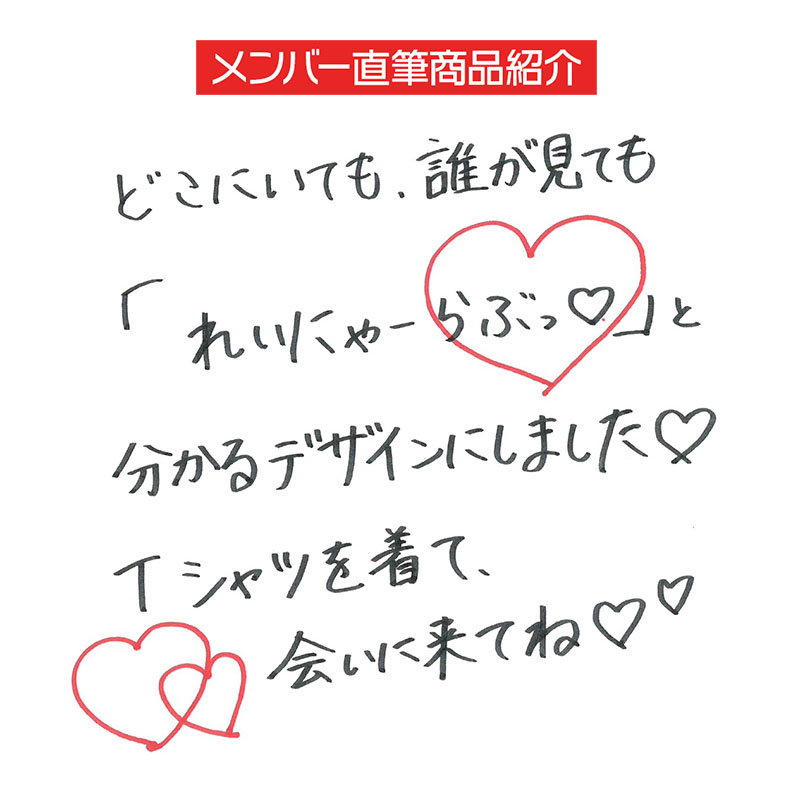 メンバー直筆商品紹介
どこにいても、誰が見ても
「れいにゃーらぶっ♡」と
分かるデザインにしました♡
Tシャツを着て、
会いに来てね♡♡